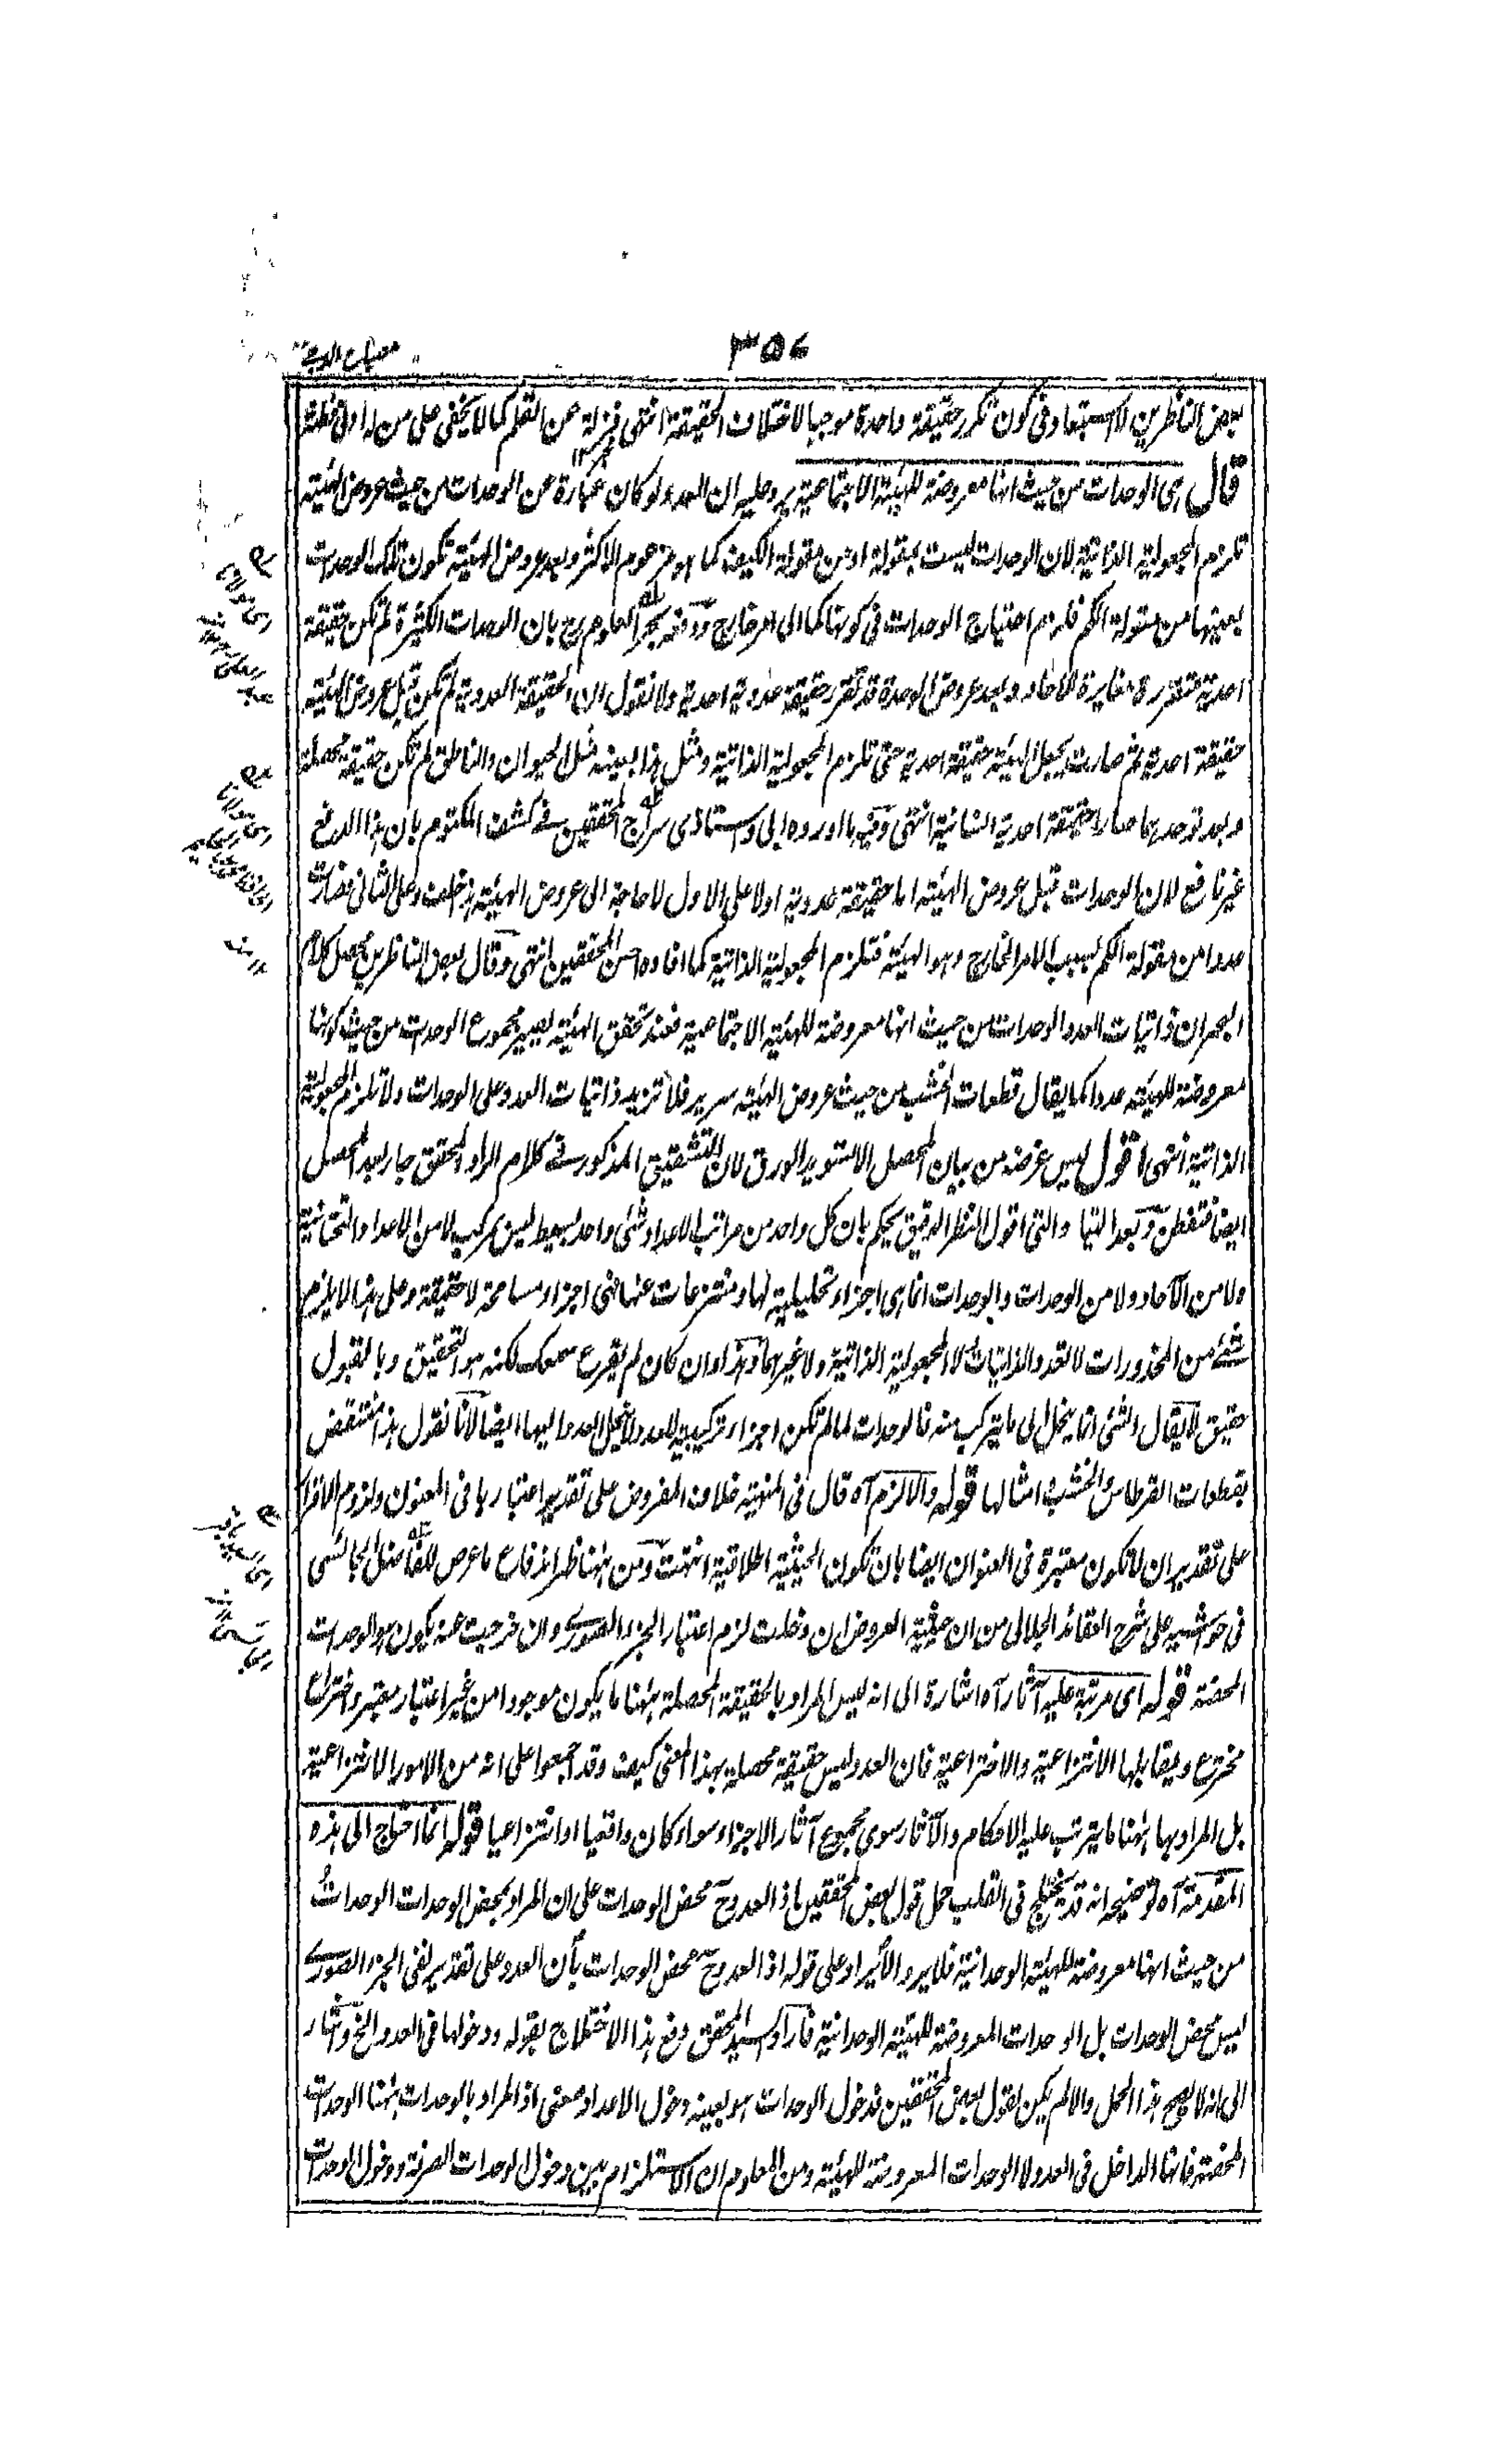 ٣٥٦
مصباح الدجى
بعض الناظرين لا استبعاد فى كون تكرر حقيقة واحدة موجبا لاختلاف الحقيقة انتهى فزلة من القلم كما لا يخفى على من له ادنى فطنة
قال اى الوحدات من حيث انها معروضة للهيئة الاجتماعية يرد عليه ان العدد لو كان عبارة عن الوحدات من حيث عروض الهيئة
تلزم المجعولية الذاتية لان الوحدات ليست بمقولة او من مقولة الكيف كما هو مزعوم الاكثر وبعد عروض الهيئة تكون تلك الوحدات
بعينها من مقولة الكم فلزم احتياج الوحدات فى كونها كما الى امر خارج ودفعه بحر العلوم رح بان الوحدات الكثيرة لم تكن حقيقة
احدية متقررة مغايرة للآحاد وبعد عروض الوحدة قد تتقرر حقيقة عددية احدية ولا نقول ان الحقيقة العددية لم تكن قبل عروض الهيئة
حقيقة احدية ثم صارت بجعل الهيئة حقيقة احدية حتى تلزم المجعولية الذاتية ومثل هذا بعينه مثل الحيوان والناطق لم تكن حقيقة محصلة
وبعد توحدهما صارا حقيقة احدية انسانية انتهى وفيه ما اورده ابى واستاذى سراج المحققين فى كشف المكتوم بان هذا الدفع
غير نافع لان الوحدات قبل عروض الهيئة اما حقيقة عددية اولا على الاول لا حاجة الى عروض الهيئة هذا خلف وعلى الثانى فصارت
عددا من مقولة الكم بسبب الامر الخارج وهو الهيئة فتلزم المجعولية الذاتية كما افاده احسن المحققين انتهى وقال بعض الناظرين محصل كلام
البحر ان ذاتيات العدد الوحدات من حيث انها معروضة للهيئة الاجتماعية فعند تحقق الهيئة يصير مجموع الوحدات من حيث كونها
معروضة للهيئة عددا كما يقال قطعات الخشب من حيث عروض الهيئة سرير فلا تزيد ذاتيات العدد على الوحدات ولا تلزم المجعولية
الذاتية انتهى اقول ليس غرضه من بيان المحصل الا تسويد الورق لان التشقيق المذكور فى كلام الراد المحقق جار بعد المحصل
ايضا فتفطن وبعد اللتيا والتى اقول النظر الدقيق يحكم بان كل واحد من مراتب الاعداد شئ واحد بسيط ليس بمركب لا من الاعداد التحتانية
ولا من الآحاد ولا من الوحدات والوحدات انما هى اجزاء تحليلية لها ومنتزعات عنها فهى اجزاء مسامحة لا حقيقة وعلى هذا لا يلزم
شئ من المحذورات لا تعدد الذاتيات ولا المجعولية الذاتية ولا غيرهما وهذا وان كان لم يقرع سمعك لكنه هو التحقيق وبالقبول
حقيق لا يقال الشئ انما ينحل الى ما يتركب منه فالوحدات لما لم تكن اجزاء تركيبية للعدد لا ينحل العدد اليها ايضا لانا نقول هذا منتقض
بقطعات القرطاس والخشب وامثالها قوله والا لزم آه قال فى المنهية خلاف المفروض على تقدير اعتبارها فى المعنون ولزوم الافراز
على تقدير ان لا تكون معتبرة فى العنوان ايضا بان تكون الحيثية اطلاقية انتهت ومن ههنا ظهر اندفاع ما عرض للفاضل الجائسى
فى حواشيه على شرح العقائد الجلالى من ان حيثية العروض ان دخلت لزم اعتبار الجزء الصورى وان خرجت عنه يكون هو الوحدات
المحضة قوله اى مرتبة عليه آثار آه اشارة الى انه ليس المراد بالحقيقة المحصلة ههنا ما يكون موجودا من غير اعتبار معتبر واختراع
مخترع ويقابلها الانتزاعية والاختراعية فان العدد ليس حقيقة محصلة بهذا المعنى كيف وقد اجمعوا على انه من الامور الانتزاعية
بل المراد بها ههنا ما يترتب عليه الاحكام والآثار سوى مجموع آثار الاجزاء سواء كان واقعيا او انتزاعيا قوله انما احتاج الى هذه
المقدمة آه توضيحه انه قد يختلج فى القلب حمل قول بعض المحققين اذ العدد ح محض الوحدات على ان المراد بمحض الوحدات الوحدات
من حيث انها معروضة للهيئة الوحدانية فلا يرد الايراد على قوله اذ العدد ح محض الوحدات بان العدد على تقدير نفى الجزء الصورى
ليس محض الوحدات بل الوحدات المعروضة للهيئة الوحدانية فاراد السيد المحقق دفع هذا الاختلاج بقوله ودخولها فى العدد الخ واشار
الى انه لا يصح هذا الحمل والا لم يكن لقول بعض المحققين فدخول الوحدات هو بعينه دخول الاعداد معنى اذ المراد بالوحدات ههنا الوحدات
المحضة فانها الداخل فى العدد لا الوحدات المعروضة للهيئة ومن المعلوم ان الاستلزام بين دخول الوحدات الصرفة ودخول الوحدات